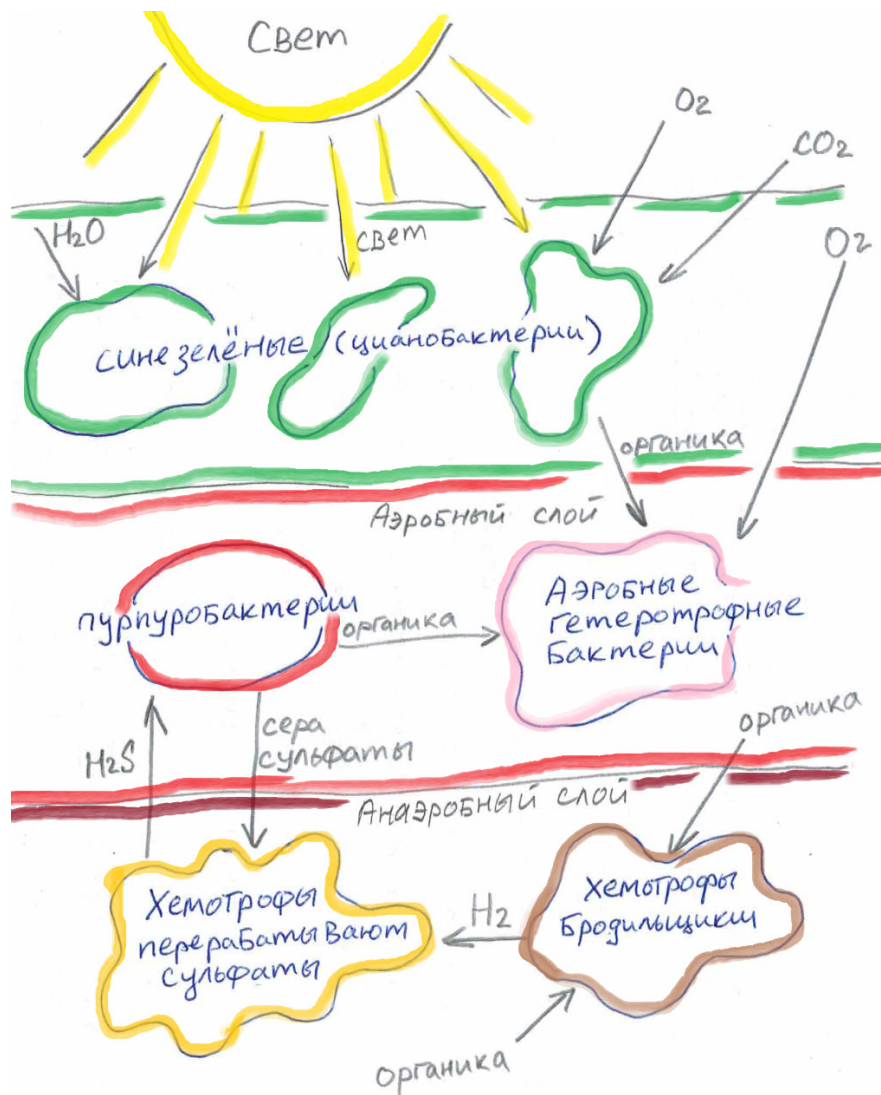 Свет
O2
CO2
H2O
свет
O2
синезелёные (цианобактерии)
органика
Аэробный слой
пурпуробактерии
органика
Аэробные
гетеротрофные
бактерии
H2S
сера
сульфаты
органика
Анаэробный слой
Хемотрофы
перерабатывают
сульфаты
H2
Хемотрофы
Бродильщики
органика